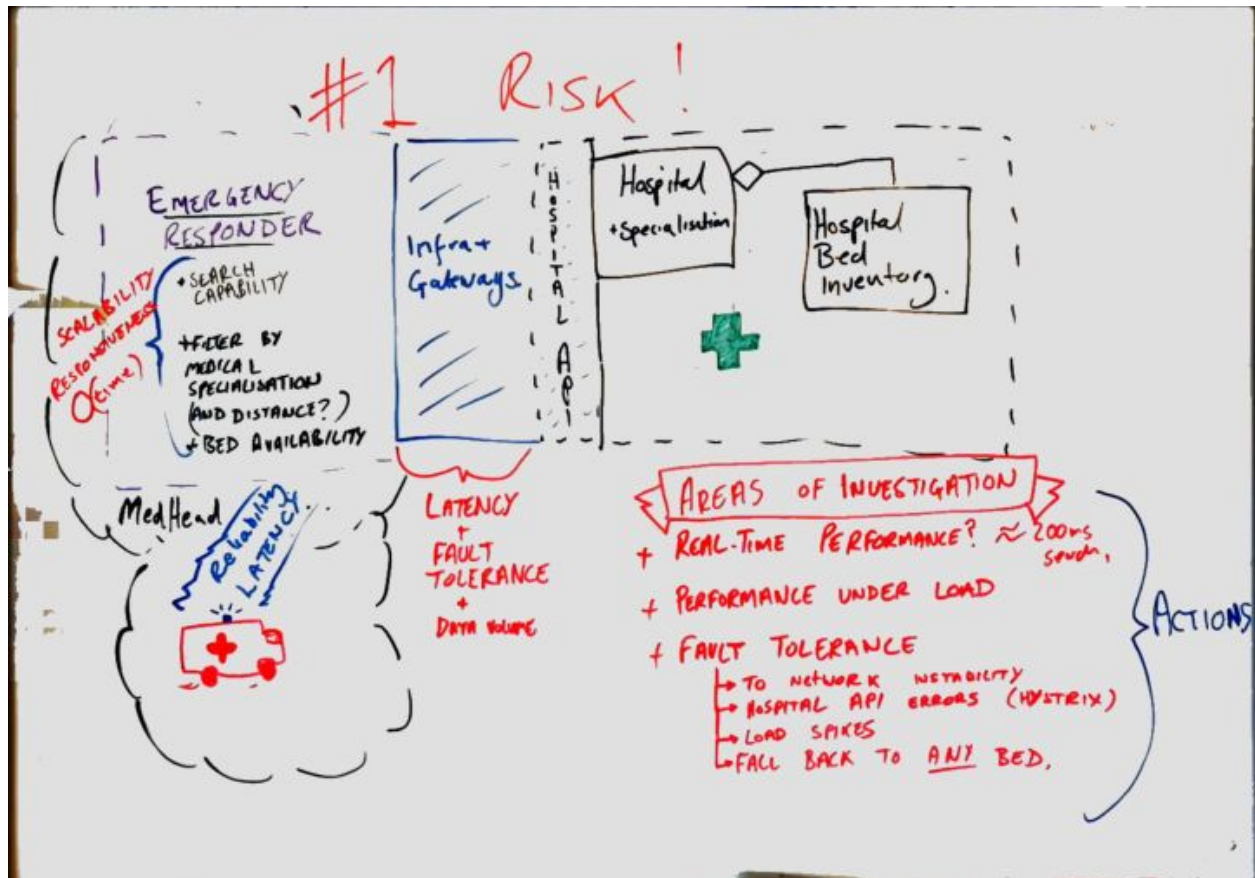 #1 RISK!
EMERGENCY
RESPONDER
+ SEARCH
CAPABILITY
+ FILTER BY
MEDICAL
SPECIALISATION
(AND DISTANCE?)
+ BED AVAILABILITY
SCALABILITY
RESPONSIVENESS
O(time)
Infra +
Gateways
HOSPITAL API
Hospital
+ Specialisation
Hospital
Bed
Inventory.
MedHead
Reliability
LATENCY
LATENCY
+
FAULT
TOLERANCE
+
DATA VOLUME
AREAS OF INVESTIGATION
+ REAL-TIME PERFORMANCE? ≈ 200ms
+ PERFORMANCE UNDER LOAD
+ FAULT TOLERANCE
→ TO NETWORK INSTABILITY
→ HOSPITAL API ERRORS (HYSTRIX)
→ LOAD SPIKES
→ FALL BACK TO ANY BED.
ACTIONS